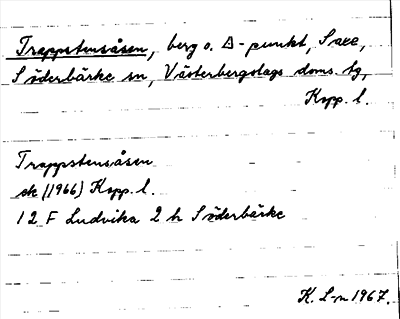 Trappstensåsen, berg o. Δ-punkt, Saxe,
Söderbärke sn, Västerbergslags doms. tg,
Kopp. l.
Trappstensåsen
ek (1966) Kopp. l.
12 F Ludvika 2 h Söderbärke
K. L-m 1967.